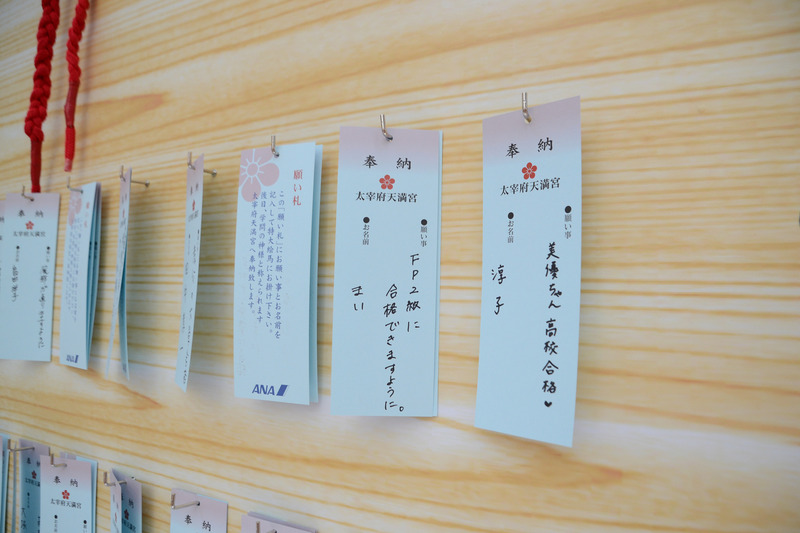 奉納
太宰府天満宮
●願い事
美優ちゃん 高校合格♥
●お名前
淳子
奉納
太宰府天満宮
●願い事
FP2級に
合格できますように。
●お名前
まい
願い札
この「願い札」にお願い事とお名前を
記入して特大絵馬にお掛け下さい。
後日、学問の神様と称えられます
太宰府天満宮へ奉納致します。
ANA
ANA
奉納
太宰府天満宮
奉納
太宰府天満宮
奉納